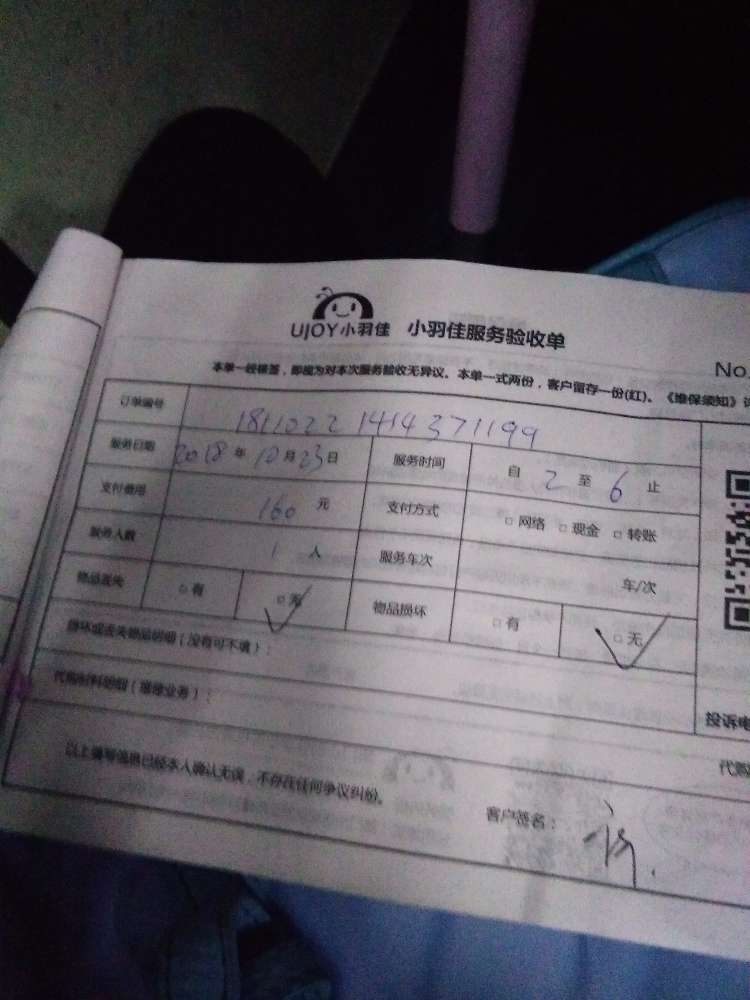 UJOY小羽佳 小羽佳服务验收单
No.
本单一经签签，即视为对本次服务验收无异议。本单一式两份，客户留存一份(红)。《维保须知》
订单编号 181022 1414371199
服务日期 2018 年 10 月 23 日 服务时间 自 2 至 6 止
支付费用 160 元 支付方式 □ 网络 □ 现金 □ 转账
服务人数 1 人 服务车次 车/次
物品丢失 □ 有 □ 无 物品损坏 □ 有 □ 无
损坏或丢失物品明细（没有可不填）：
代购材料明细（维修业务）：
投诉电
代购
以上填写信息已经本人确认无误，不存在任何争议纠纷。
客户签名：